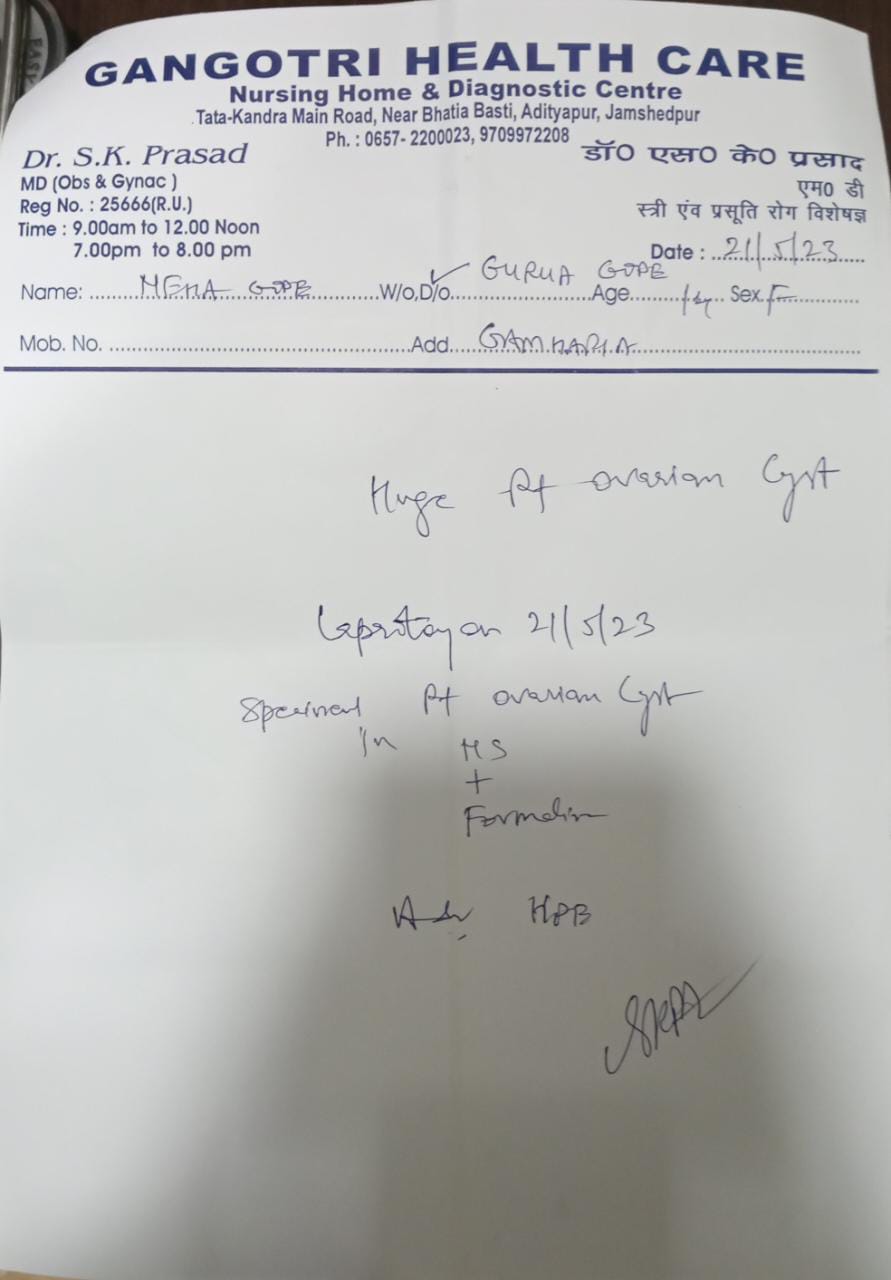 GANGOTRI HEALTH CARE
Nursing Home & Diagnostic Centre
Tata-Kandra Main Road, Near Bhatia Basti, Adityapur, Jamshedpur
Ph. : 0657- 2200023, 9709972208
Dr. S.K. Prasad
MD (Obs & Gynac )
Reg No. : 25666(R.U.)
Time : 9.00am to 12.00 Noon
7.00pm to 8.00 pm
डॉ० एस० के० प्रसाद
एम० डी
स्त्री एंव प्रसूति रोग विशेषज्ञ
Date : 21/5/23
Name: GOPE W/o,D/o. GURUA GOPE Age Sex F
Mob. No. Add. GAMHARIA
Huge Rt ovarian Cyst
on 21/5/23
Specimen Rt ovarian Cyst
in MS
+
Formalin
Adv HPB